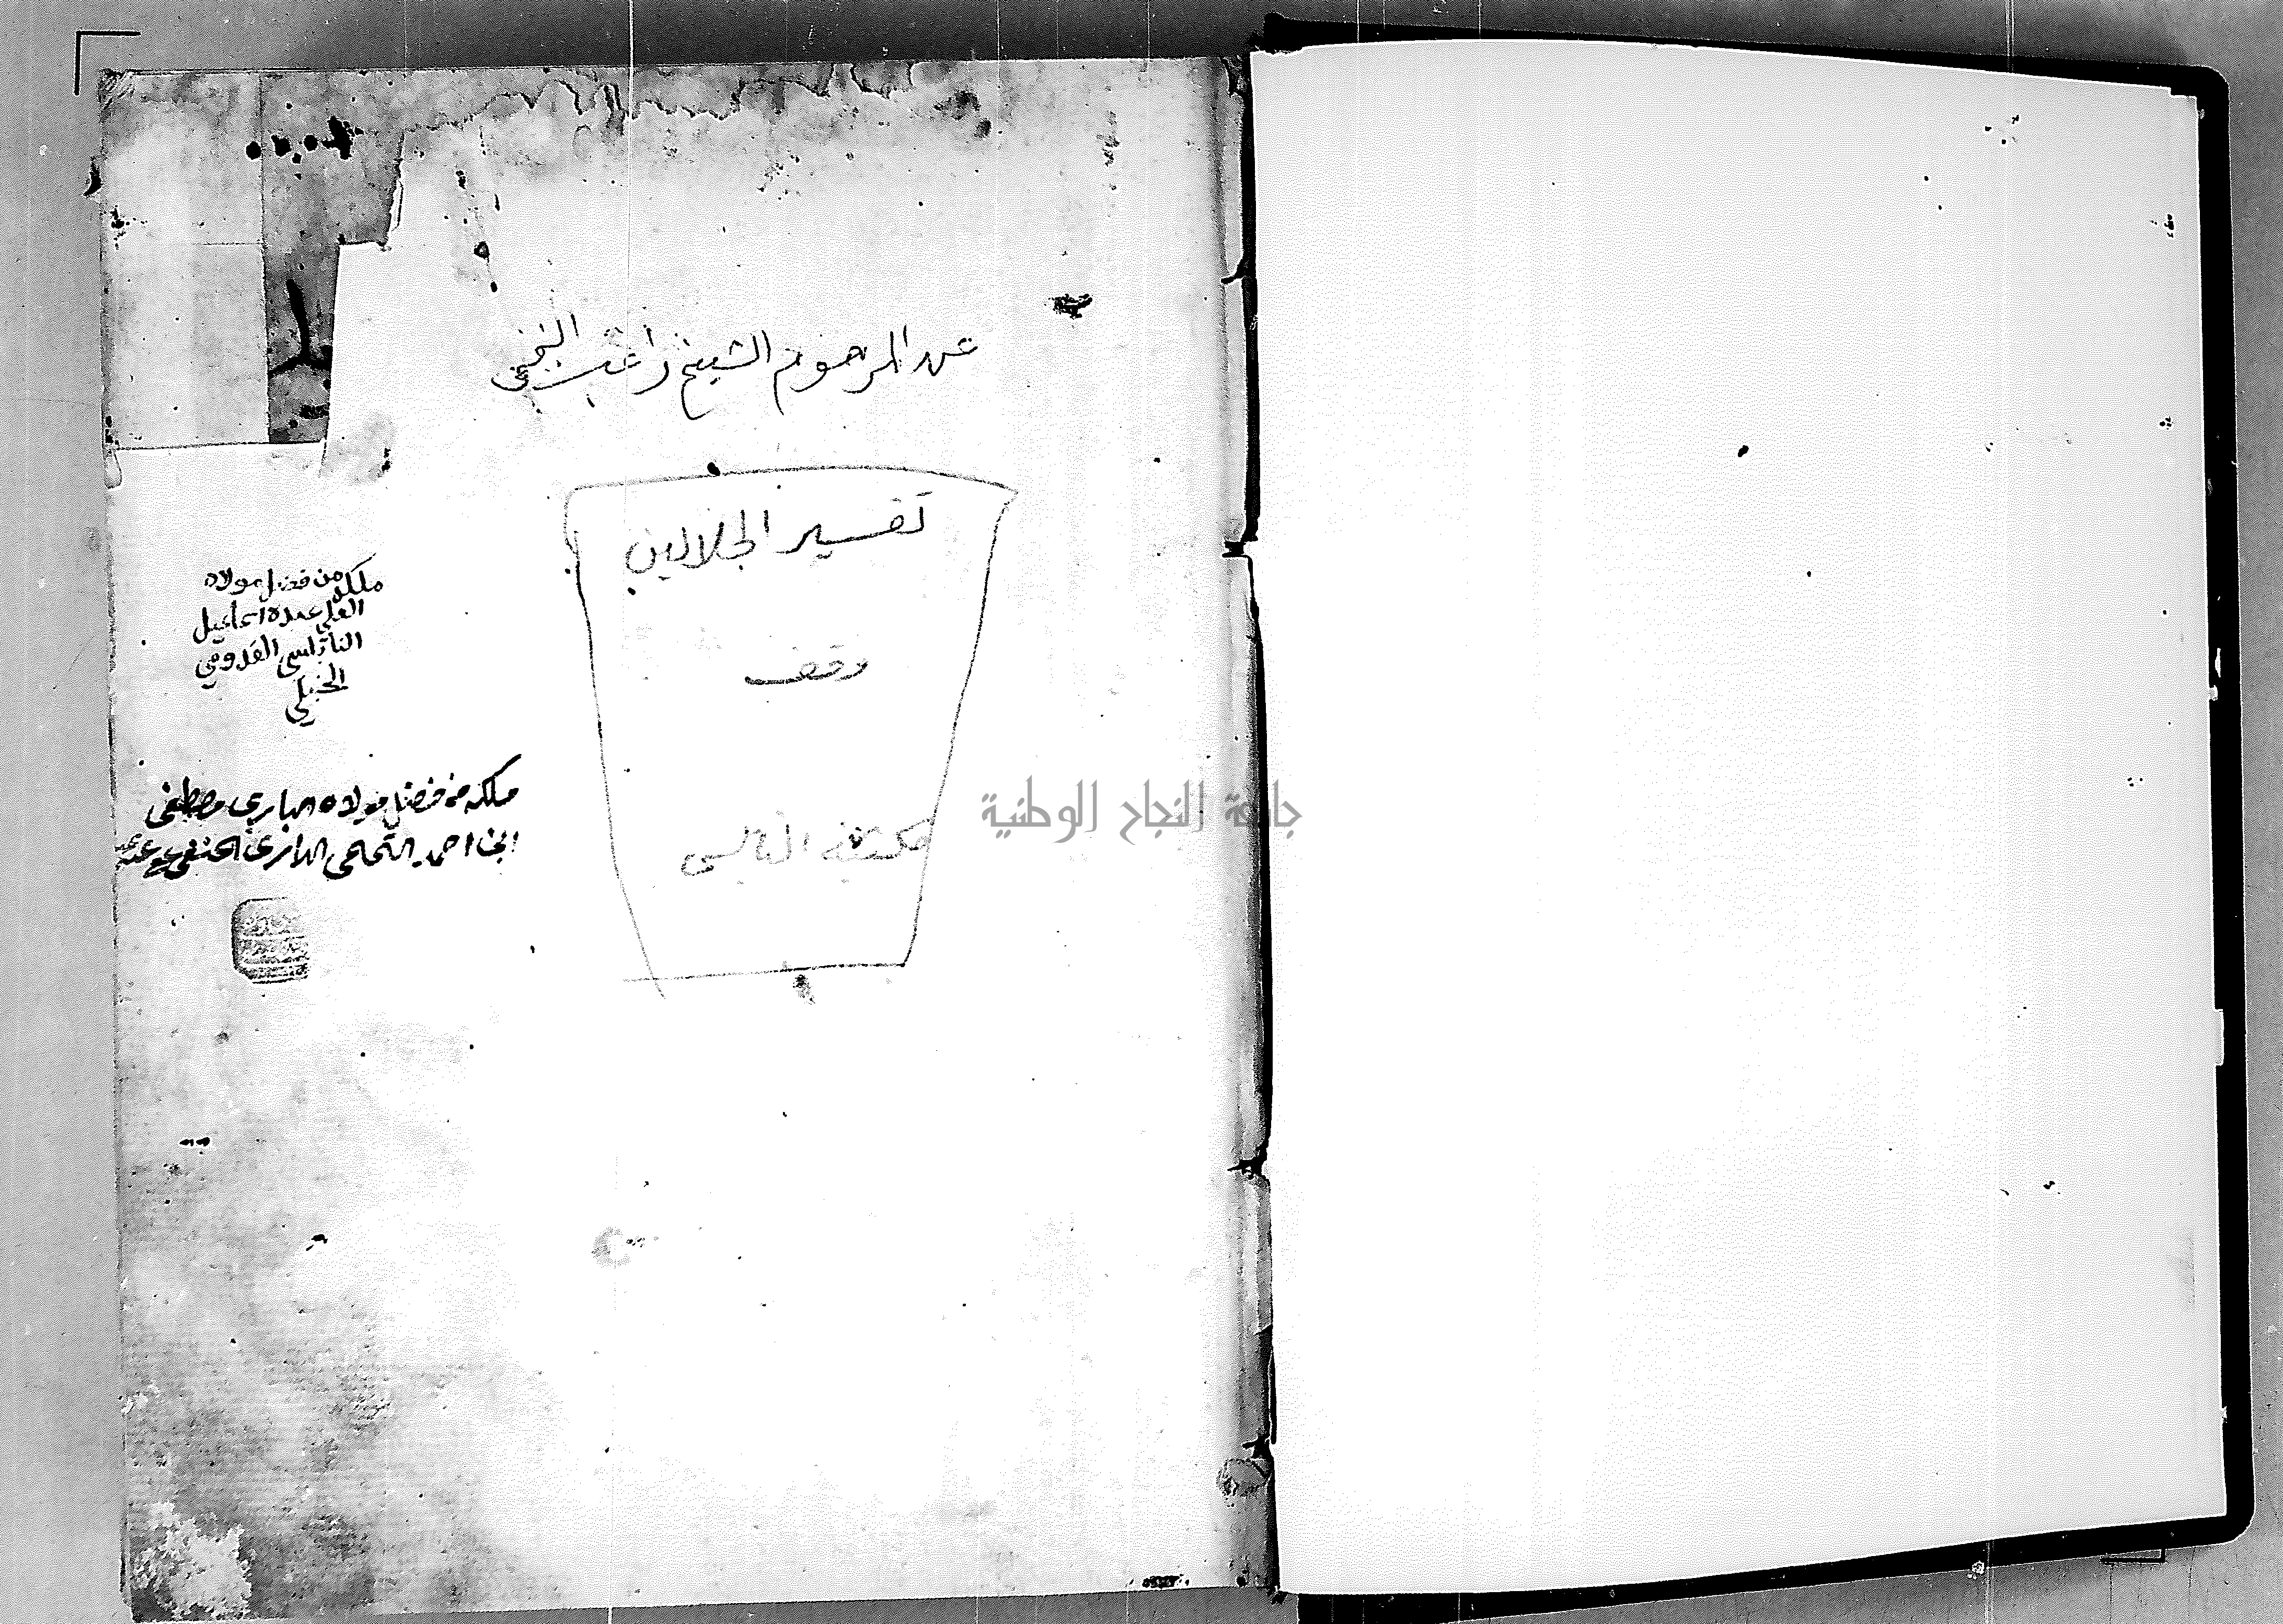 عن المرحوم الشيخ راغب
تفسير الجلالين
وقف
مكتبة النابلسي
ملكه من فضل مولاه
العلي عبده اسماعيل
النابلسي القدومي
الحنبلي
ملكه من فضل مولاه الباري مصطفى
احمد الداري الحنفي عفي عنه
جامعة النجاح الوطنية